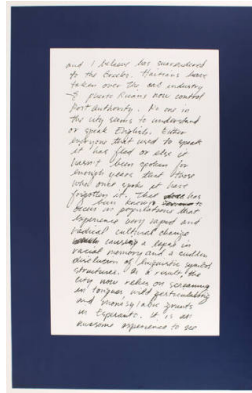 and I believe has surrendered
to the Greeks. Haitians have
taken over the art industry
+ Puerto Ricans now control
Port Authority. No one in
the city seems to understand
or speak English. Either
everyone that used to speak
it has fled or else it
hasn't been spoken for
enough years that those
who once spoke it have
forgotten it. That has
been known to
occur in populations that
experience very rapid and
radical cultural change
causing a lapse in
racial memory and a sudden
dissolution of linguistic symbol
structures. As a result, the
city now relies on screaming
in tongues, wild gesticulating
and monosyllabic grunts
in Esperanto. It is an
awesome experience to see